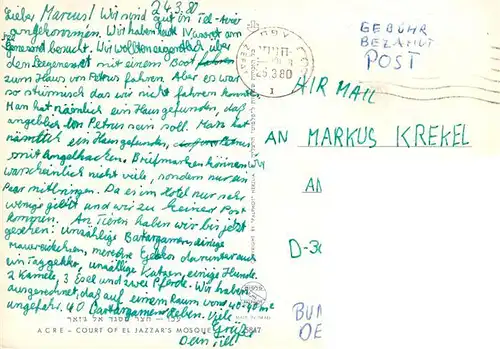 24.3.80
Lieber Marcus! Wir sind gut in Tel-Aviv
angekommen. Wir haben heute
besucht. Wir wollten eigentlich über
den See mit einem Boot fahren
zum Haus von Petrus fahren. Aber es war
so stürmisch das wir nicht fahren konnte
Man hat nämlich ein Haus gefunden, daß
angeblich von Petrus sein soll. Man hat
nämlich ein Haus gefunden,
mit Angelhacken. Briefmarken können wir
warscheinlich nicht viele, sondern nur ein
Par mitbringen. Da es im Hotel nur sehr
wenige gibt und wir zu keiner Post
kommen. An Tieren haben wir bis jetzt
gesehen: unzählige einige
Mauereidechsen, mehrere Geckos darunter auch
ein Taggekko, unzählige Katzen, einige Hunde
2 Kamele, 3 Esel und zwei Pferde. Wir haben
ausgerechnet, daß auf einem Raum von 40·40 m²
ungefähr 40 leben. Viele
Grüße
Dein
עכו - חצר מסגד אל ג'זאר
ACRE - COURT OF EL JAZZAR'S MOSQUE
5847
25.3.80
1
GEBÜHR
BEZAHLT
POST
AIR MAIL
AN MARKUS KREKEL
D-